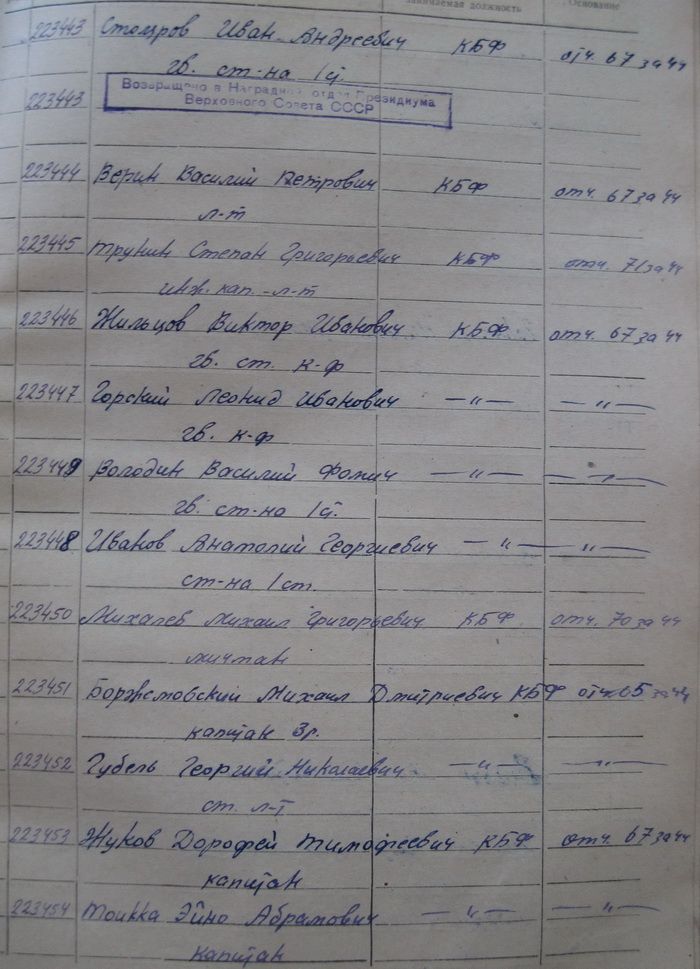 занимаемая должность Основание
223443 Столяров Иван Андреевич КБФ отч. 67 за 44
гв. ст-на 1й.
Возвращено в Наградной отдел Президиума
223443 Верховного Совета СССР
223444 Верин Василий Петрович КБФ отч. 67 за 44
л-т
223445 Трунин Степан Григорьевич КБФ отч. 71 за 44
инж. кап.-л-т
223446 Жильцов Виктор Иванович КБФ отч. 67 за 44
гв. ст. к-ф
223447 Горский Леонид Иванович —"— —"—
гв. к-ф
223449 Володин Василий Фомич —"— —"—
гв. ст-на 1й.
223448 Иванов Анатолий Георгиевич —"— —"—
ст-на 1 ст.
223450 Михалев Михаил Григорьевич КБФ отч. 70 за 44
мичман
223451 Михаил Дмитриевич КБФ отч. 65 за 44
капитан 3р.
223452 Губель Георгий Николаевич —"— —"—
ст. л-т
223453 Жуков Дорофей Тимофеевич КБФ отч. 67 за 44
капитан
223454 Тоикка Эйно Абрамович —"— —"—
капитан